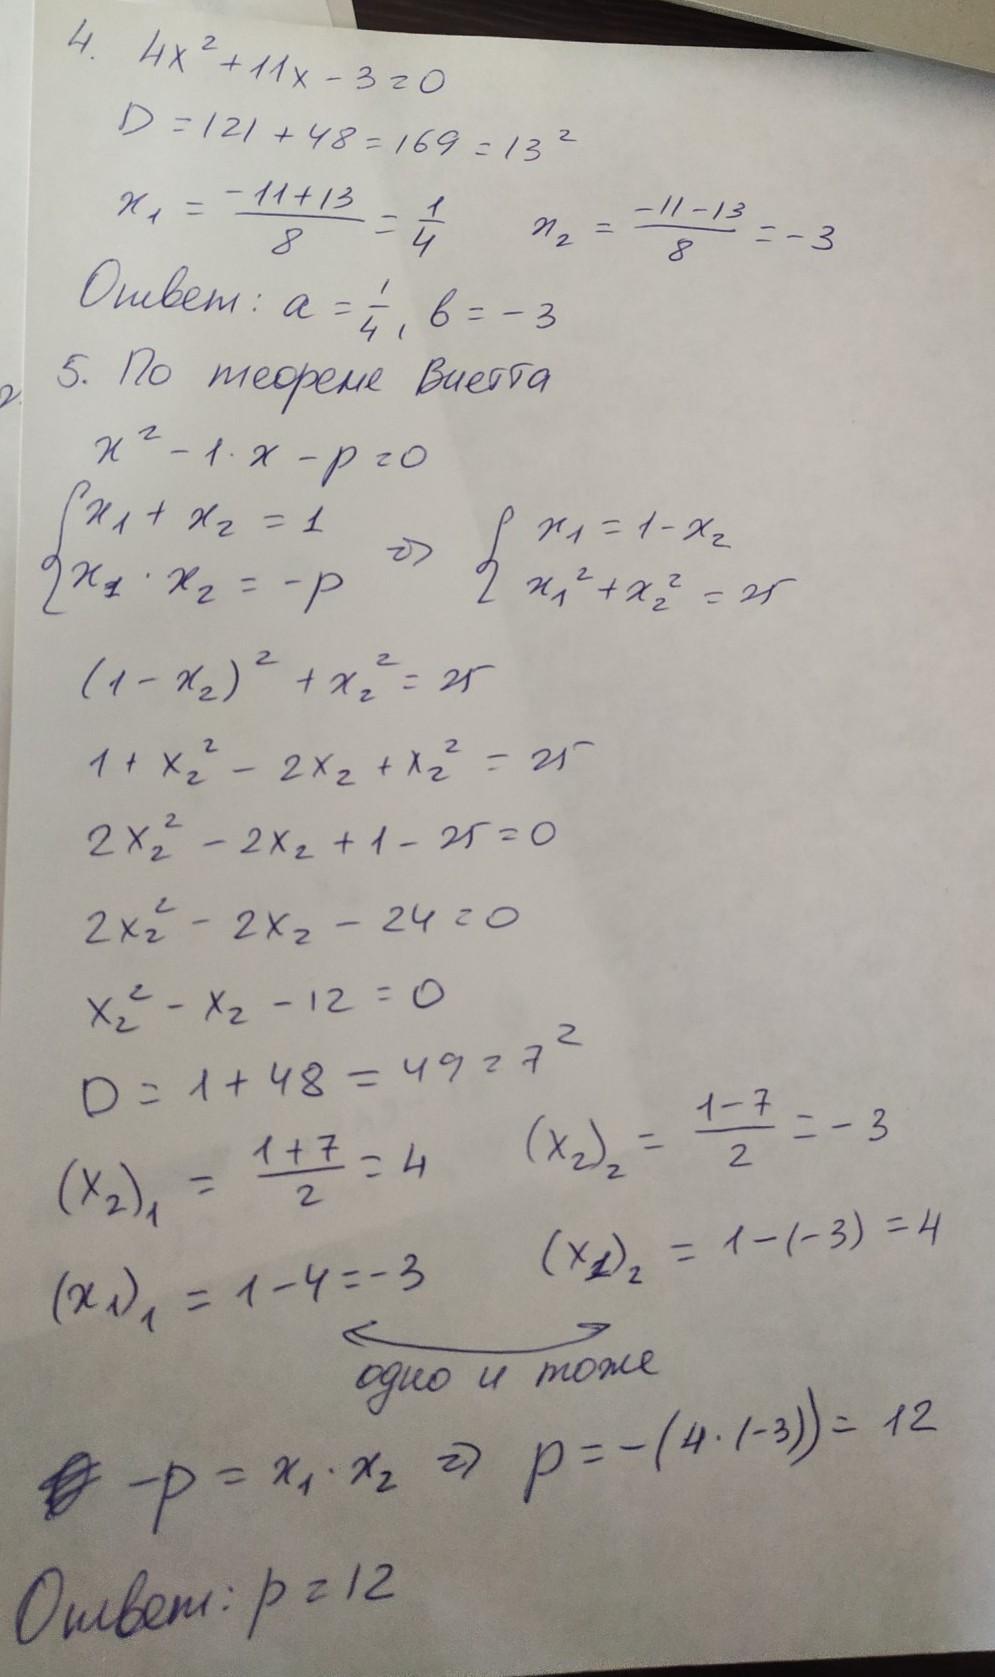 4. 4x² + 11x - 3 = 0
D = 121 + 48 = 169 = 13²
x₁ = (-11+13)/8 = 1/4 x₂ = (-11-13)/8 = -3
Ответ: a = 1/4, b = -3
5. По теореме Виетта
x² - 1·x - p = 0
{ x₁ + x₂ = 1 => { x₁ = 1 - x₂
{ x₁ · x₂ = -p { x₁² + x₂² = 25
(1 - x₂)² + x₂² = 25
1 + x₂² - 2x₂ + x₂² = 25
2x₂² - 2x₂ + 1 - 25 = 0
2x₂² - 2x₂ - 24 = 0
x₂² - x₂ - 12 = 0
D = 1 + 48 = 49 = 7²
(x₂)₁ = (1+7)/2 = 4 (x₂)₂ = (1-7)/2 = -3
(x₁)₁ = 1 - 4 = -3 (x₁)₂ = 1 - (-3) = 4
одно и тоже
-p = x₁ · x₂ => p = -(4·(-3)) = 12
Ответ: p = 12